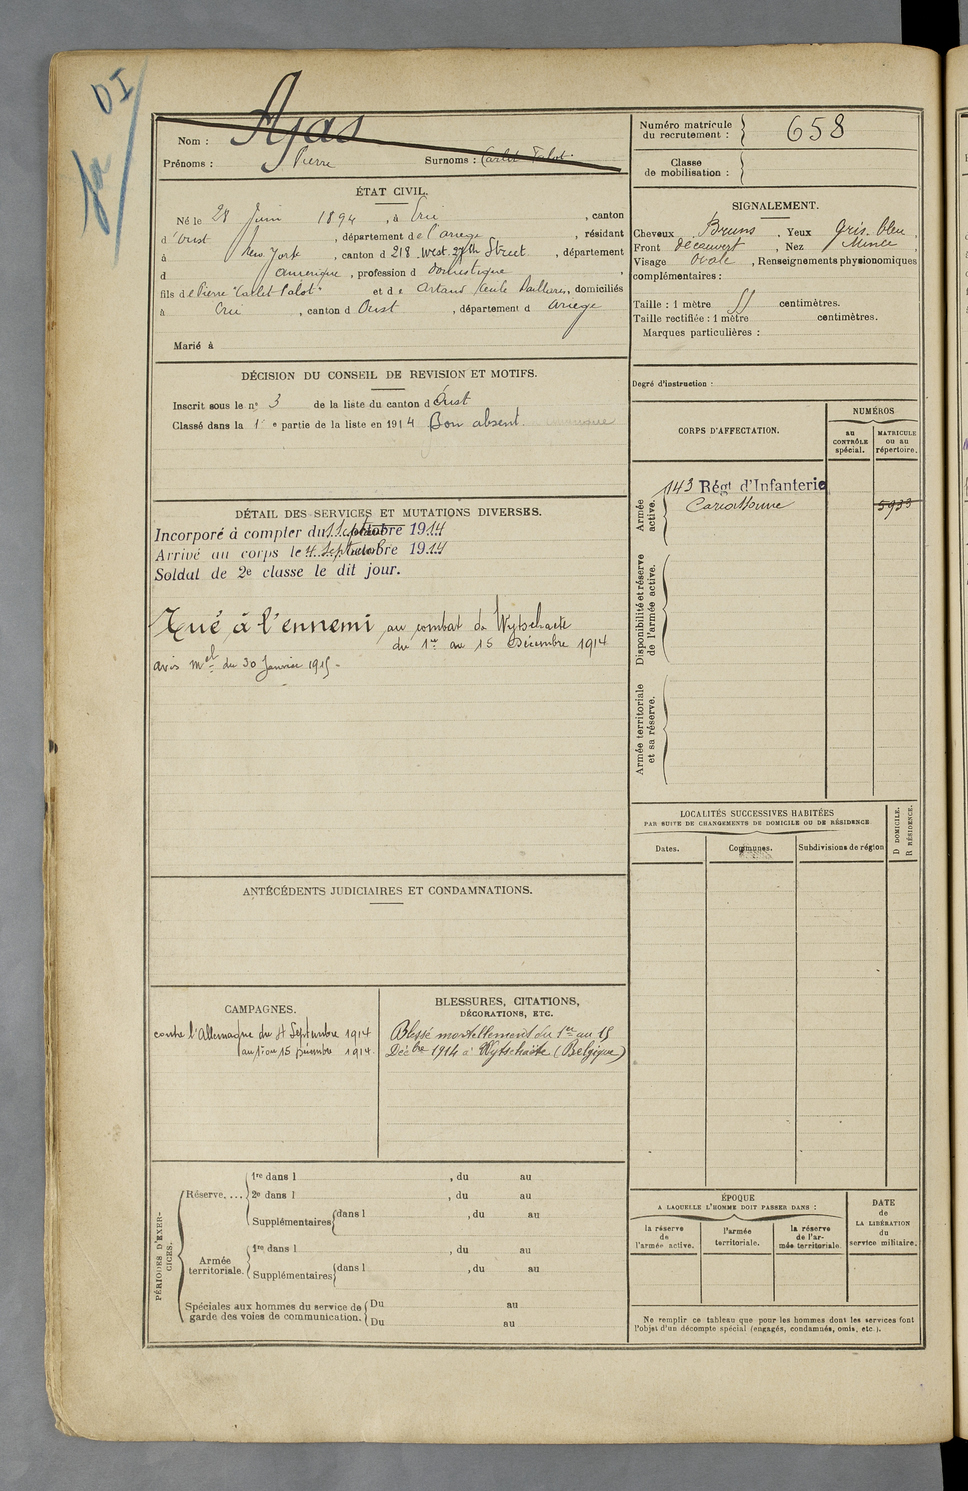 DI
Nom : Ajas
Prénoms : Pierre Surnoms : Carlet Talot
Numéro matricule du recrutement : 658
Classe de mobilisation :
ÉTAT CIVIL.
Né le 28 Juin 1894, à Ercé, canton
d'Oust, département de l'ariege, résidant
à New York, canton d 218 West 27th Street, département
d amerique, profession d domestique,
fils de Pierre "Carlet Talot" et de Artaud Paillares, domiciliés
à Ercé, canton d Oust, département d ariege
Marié à
SIGNALEMENT.
Cheveux Bruns, Yeux Gris. bleu,
Front découvert, Nez Mince,
Visage ovale, Renseignements physionomiques
complémentaires :
Taille : 1 mètre centimètres.
Taille rectifiée : 1 mètre centimètres.
Marques particulières :
Degré d'instruction :
DÉCISION DU CONSEIL DE REVISION ET MOTIFS.
Inscrit sous le n° 3 de la liste du canton d Oust
Classé dans la 1e partie de la liste en 1914 Bon absent.
CORPS D'AFFECTATION.
NUMÉROS
au CONTRÔLE spécial.
MATRICULE ou au répertoire.
Armée active.
143 Régt d'Infanterie
Carcassonne 5933
Disponibilité et réserve de l'armée active.
Armée territoriale et sa réserve.
DÉTAIL DES SERVICES ET MUTATIONS DIVERSES.
Incorporé à compter du 1 Septembre 1914
Arrivé au corps le 4 Septembre 1914
Soldat de 2e classe le dit jour.
Tué à l'ennemi au combat de Wytschaete
du 1er au 15 Décembre 1914
avis mel du 30 Janvier 1915.
LOCALITÉS SUCCESSIVES HABITÉES
PAR SUITE DE CHANGEMENTS DE DOMICILE OU DE RÉSIDENCE.
Dates.
Communes.
Subdivisions de région
D DOMICILE.
R RÉSIDENCE.
ANTÉCÉDENTS JUDICIAIRES ET CONDAMNATIONS.
CAMPAGNES.
contre l'Allemagne du 4 Septembre 1914
au 1er au 15 Décembre 1914.
BLESSURES, CITATIONS,
DÉCORATIONS, ETC.
Blessé mortellement du 1er au 15
Décbre 1914 à Wytschaëte (Belgique)
PÉRIODES D'EXERCICES.
Réserve....
1re dans l , du au
2e dans l , du au
Supplémentaires dans l , du au
Armée territoriale.
1re dans l , du au
Supplémentaires dans l , du au
Spéciales aux hommes du service de garde des voies de communication.
Du au
Du au
ÉPOQUE
A LAQUELLE L'HOMME DOIT PASSER DANS :
la réserve de l'armée active.
l'armée territoriale.
la réserve de l'armée territoriale.
DATE de LA LIBÉRATION du service militaire.
Ne remplir ce tableau que pour les hommes dont les services font
l'objet d'un décompte spécial (engagés, condamnés, omis, etc.).